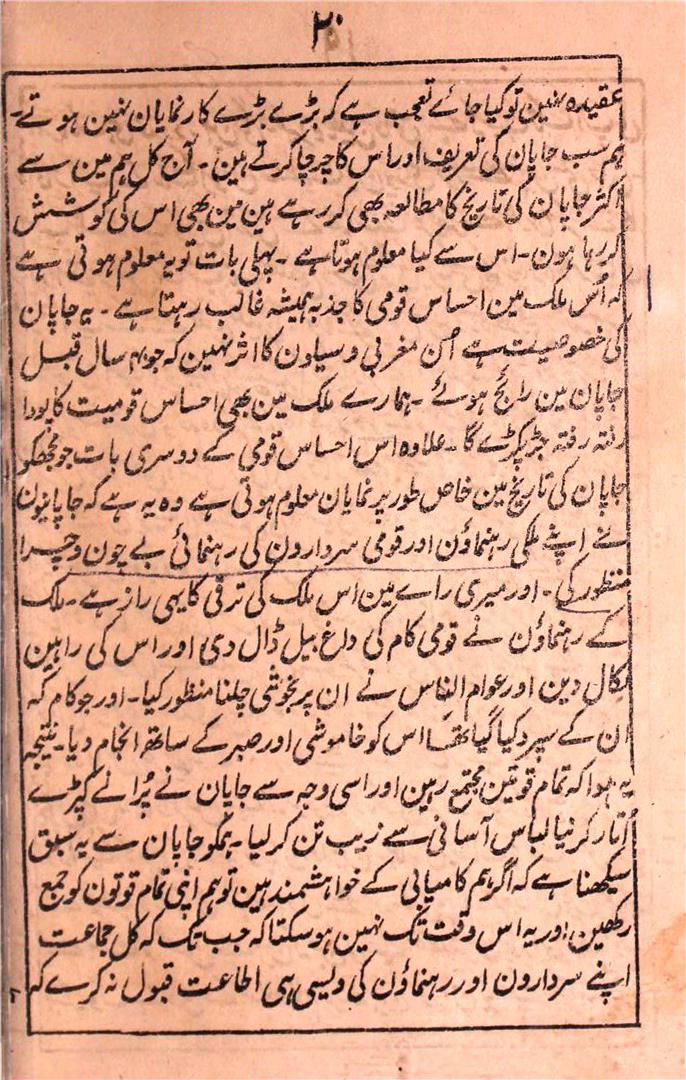 ۲۰
عقیدہ نہین تو کیا جائے تعجب ہے کہ بڑے بڑے کار نمایان نہین ہوتے۔
ہم سب جاپان کی تعریف اور اس کا چرچا کرتے ہین۔ آج کل ہم مین سے
اکثر جاپان کی تاریخ کا مطالعہ بھی کر رہے ہین مین بھی اس کی کوشش
کر رہا ہون۔ اس سے کیا معلوم ہوتا ہے۔ پہلی بات تو یہ معلوم ہوتی ہے
کہ اُس ملک مین احساس قومی کا جذبہ ہمیشہ غالب رہتا ہے۔ یہ جاپان
کی خصوصیت ہے اُسن مغربی وسیلون کا اثر نہین کہ جو ۴۰ سال قبل
جاپان مین رائج ہوئے۔ ہمارے ملک مین بھی احساس قومیت کا پودا
رفتہ رفتہ جڑ پکڑے گا۔ علاوہ اس احساس قومی کے دوسری بات جو مجھکو
جاپان کی تاریخ مین خاص طور پر نمایان معلوم ہوتی ہے وہ یہ ہے کہ جاپانیون
نے اپنے ملکی رہنماؤن اور قومی سردارون کی رہنمائی بے چون و چرا
منظور کی۔ اور میری راے مین اس ملک کی ترقی کا یہی راز ہے۔ ملک
کے رہنماؤن نے قومی کام کی داغ بیل ڈال دی اور اس کی راہین
نکال دین اور عوام الناس نے ان پر بخوشی چلنا منظور کیا۔ اور جو کام کہ
ان کے سپرد کیا گیا تھا اس کو خاموشی اور صبر کے ساتھ انجام دیا۔ نتیجہ
یہ ہوا کہ تمام قوتین مجتمع رہین اور اسی وجہ سے جاپان نے پُرانے کپڑے
اُتار کر نیا لباس آسانی سے زیب تن کر لیا۔ ہمکو جاپان سے یہ سبق
سیکھنا ہے کہ اگر ہم کامیابی کے خواہشمند ہین تو ہم اپنی تمام قوتون کو جمع
رکھین اور یہ اس وقت تک نہین ہو سکتا کہ جب تک کہ کل جماعت
اپنے سردارون اور رہنماؤن کی ویسی ہی اطاعت قبول نہ کرے کہ